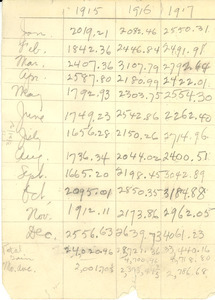 1915 1916 1917
Jan. 2019.21 2082.46 2550.31
Feb. 1842.36 2446.84 2491.98
Mar. 2407.36 3107.79
Apr. 2587.80 2180.99 2422.01
May 1792.93 2303.75 2554.30
June 1749.23 2542.86 2262.40
July 1656.28 2150.26 2714.96
Aug. 1736.34 2044.02 2400.51
Sept. 1665.20 2198.45 3042.89
Oct. 2095.01 2850.35 3184.88
Nov. 1912.11 2173.86 2962.05
Dec. 2556.63 4061.23
Total
Gain
Mo. Ave. 2,786.68